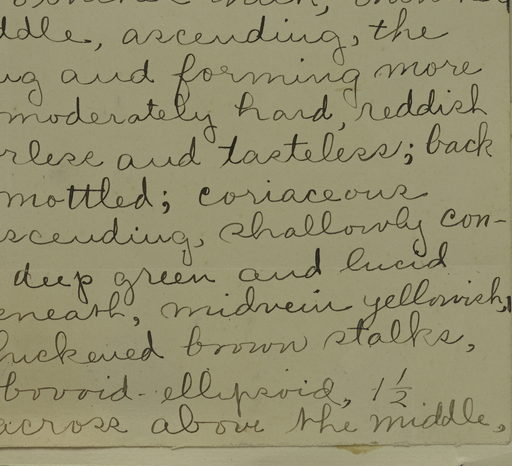 ddle, ascending, the
ng and forming more
moderately hard, reddish
rless and tasteless; back
mottled; coriaceous
scending, shallowly con-
deep green and lucid
eneath, midvein yellowish,
hickened brown stalks,
bovoid-ellipsoid, 1 1/2
across above the middle,